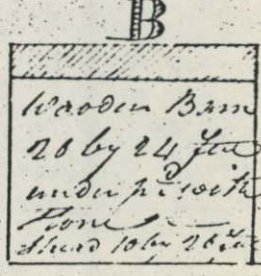 B
Wooden Barn
20 by 24 feet
under pd with
Stone
Shead 10 by 26 feet